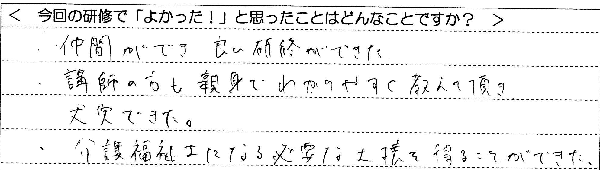 ＜ 今回の研修で「よかった！」と思ったことはどんなことですか？ ＞
・仲間ができ 良い研修ができた
・講師の方も親身でわかりやすく教えて頂き
充実できた。
・介護福祉士になる必要な土壌を得ることができた。